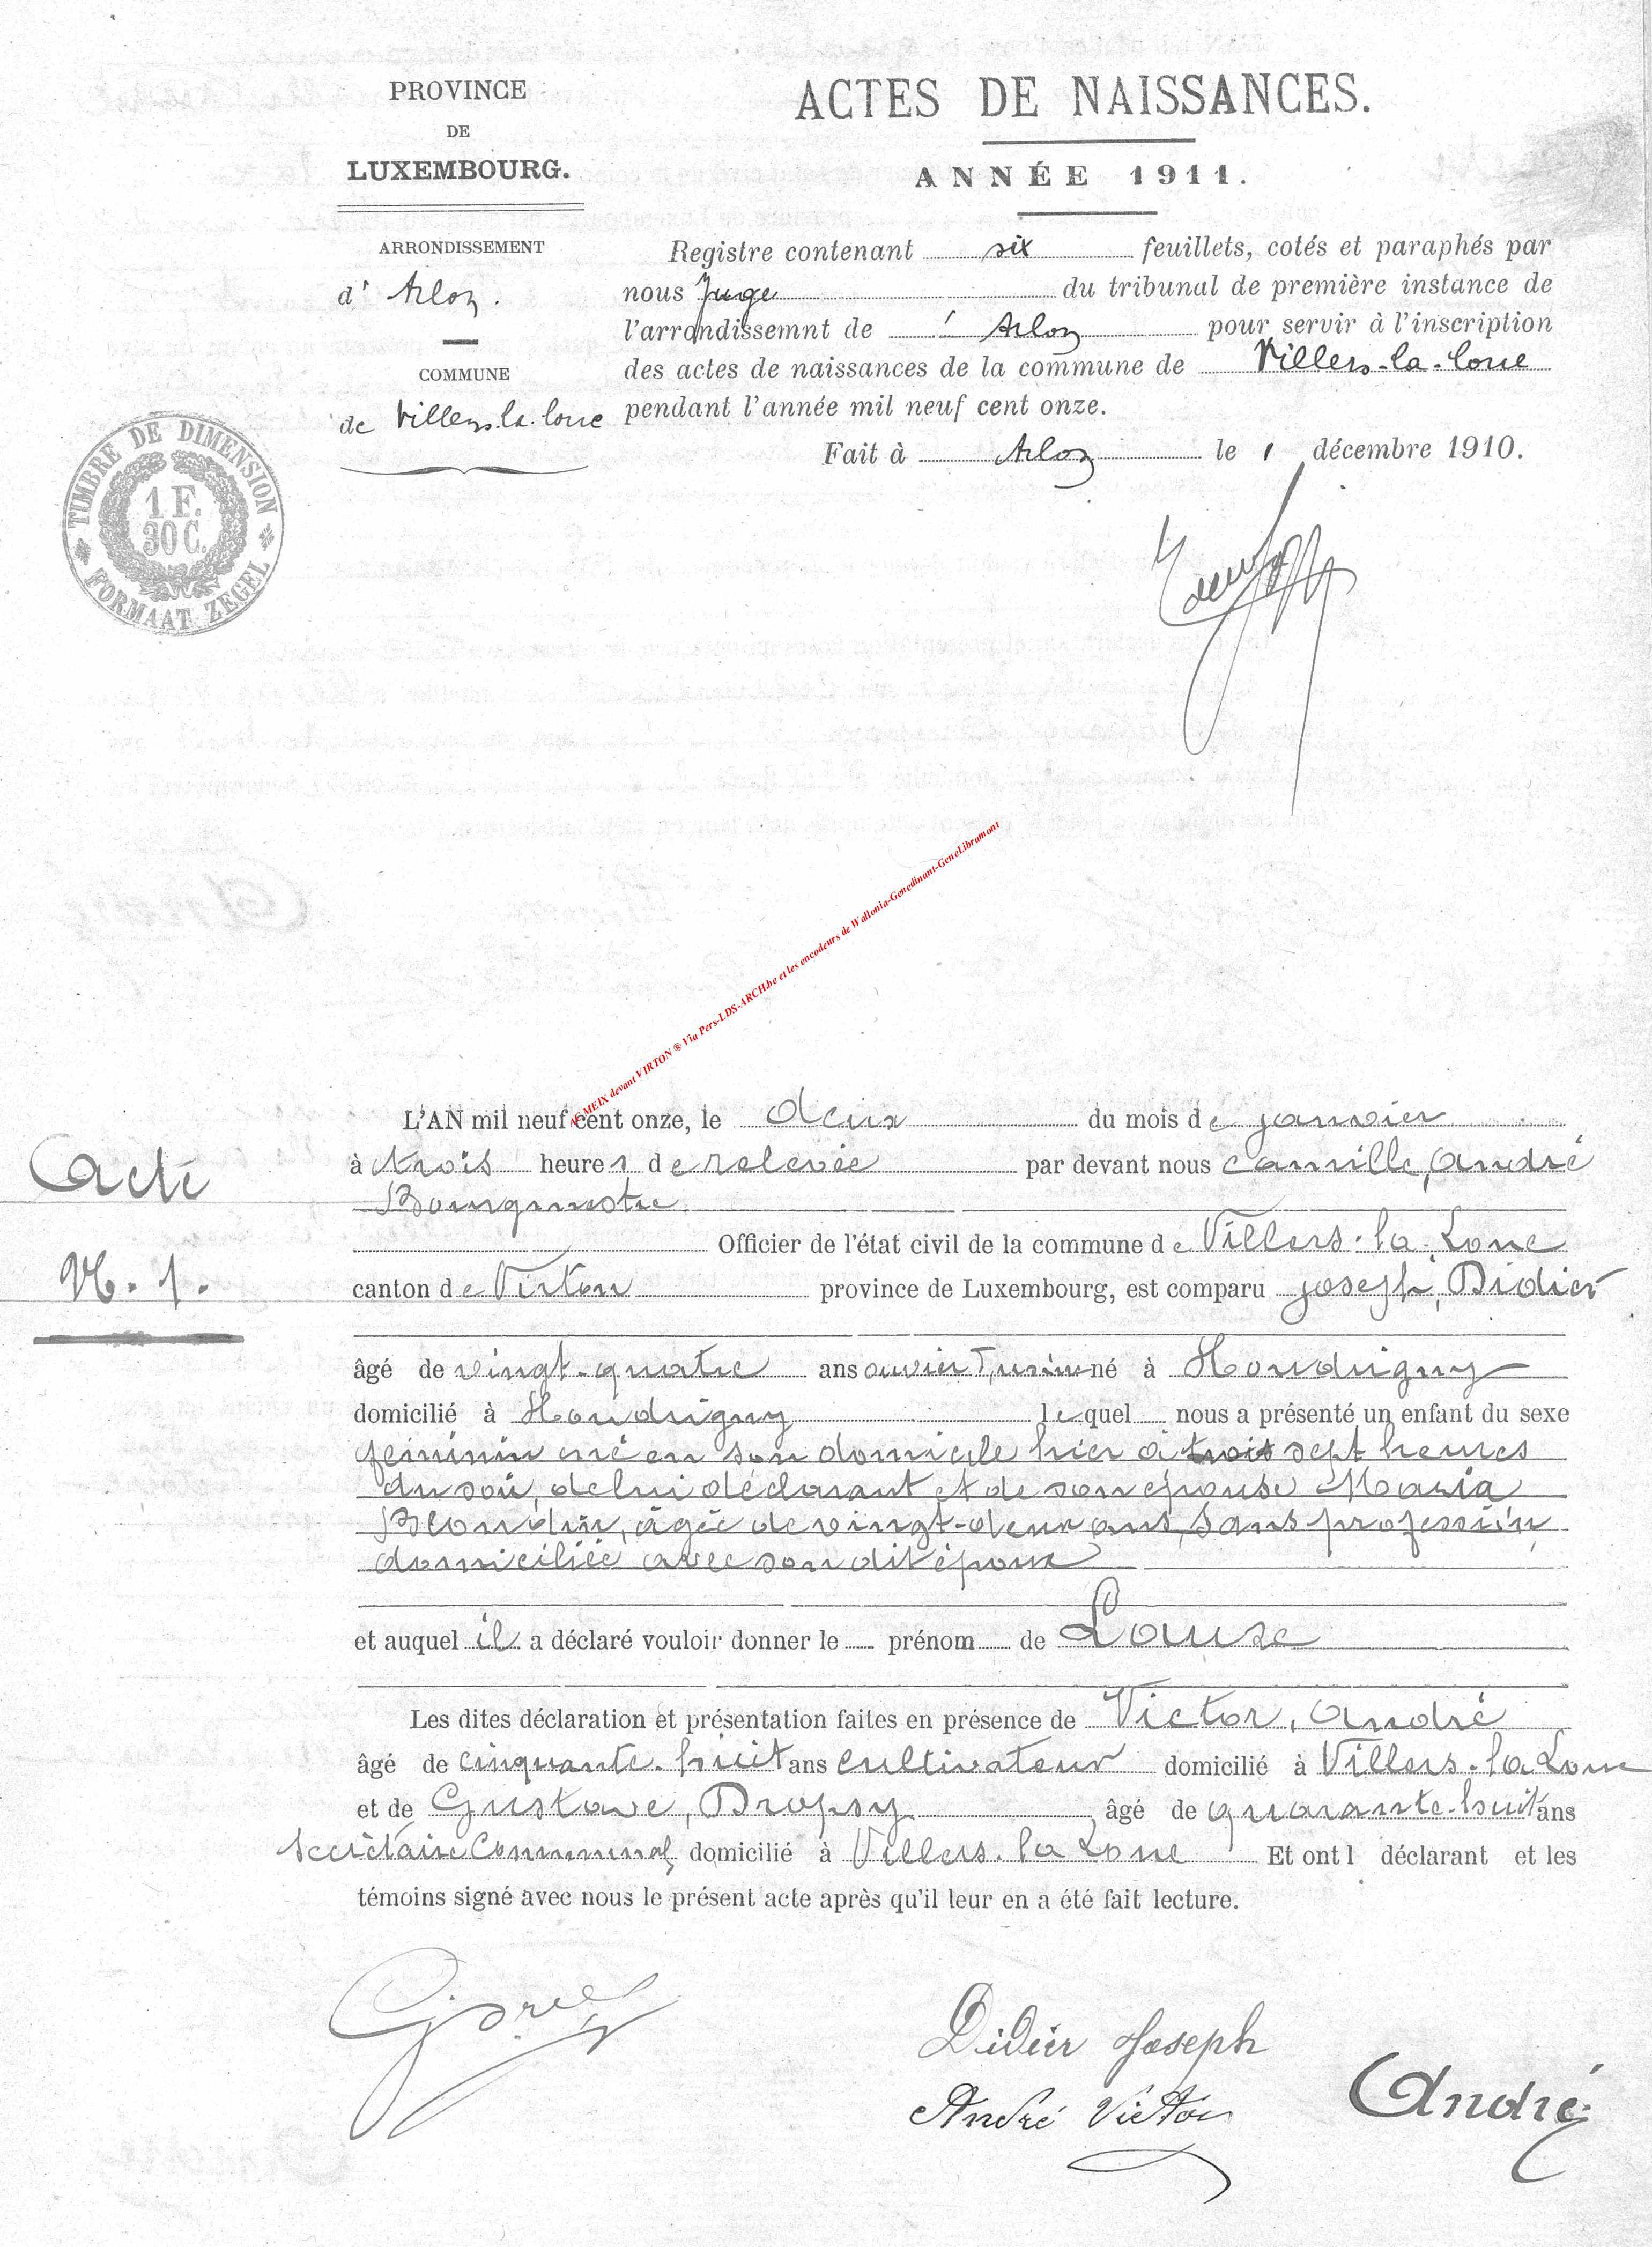 PROVINCE
DE
LUXEMBOURG.
ARRONDISSEMENT
d' Arlon.
COMMUNE
de Villers-la-loue
TIMBRE DE DIMENSION
1 F.
30 C.
FORMAAT ZEGEL
ACTES DE NAISSANCES.
ANNÉE 1911.
Registre contenant six feuillets, cotés et paraphés par
nous Juge du tribunal de première instance de
l'arrondissemnt de Arlon pour servir à l'inscription
des actes de naissances de la commune de Villers-la-loue
pendant l'année mil neuf cent onze.
Fait à Arlon le 1 décembre 1910.
MEIX devant VIRTON ® Via Pers-LDS-ARCH.be et les encodeurs de Wallonia-Genedinant-GeneLibramont
Acte
N. 1.
L'AN mil neuf cent onze, le deux du mois de janvier
à trois heures de relevée par devant nous Camille, André
Bourgmestre
Officier de l'état civil de la commune de Villers-la-Loue
canton de Virton province de Luxembourg, est comparu Joseph, Didier
âgé de vingt-quatre ans ouvrier né à Houdrigny
domicilié à Houdrigny lequel nous a présenté un enfant du sexe
féminin né en son domicile hier à trois sept heures
du soir, de lui déclarant et de son épouse Maria
Blondin, âgée de vingt-deux ans, sans profession,
domiciliée avec son dit époux
et auquel il a déclaré vouloir donner le prénom de Louise
Les dites déclaration et présentation faites en présence de Victor, André
âgé de cinquante-huit ans cultivateur domicilié à Villers-la-Loue
et de Gustave, Dropsy âgé de quarante-huit ans
secrétaire Communal, domicilié à Villers-la-Loue Et ont l déclarant et les
témoins signé avec nous le présent acte après qu'il leur en a été fait lecture.
Didier Joseph
André Victor
André